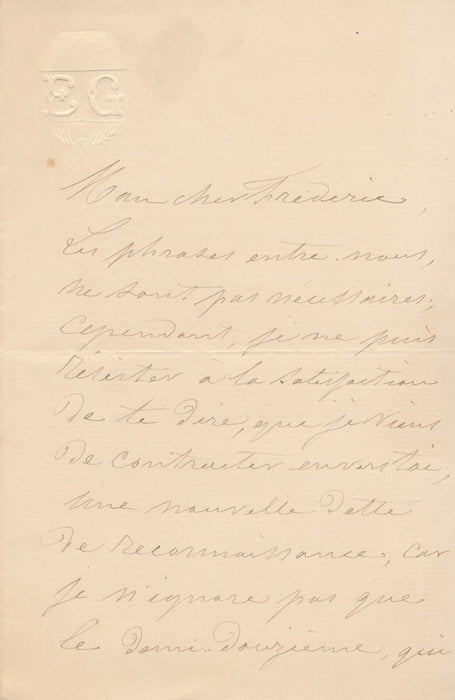 EC
Mon cher Fréderic,
Les phrases entre nous,
ne sont pas nécessaires;
Cependant, je ne puis
résister à la satisfaction
de te dire, que je viens
de contracter envers toi,
une nouvelle dette
de reconnaissance, car
je n'ignore pas que
le demi-douzième, qui